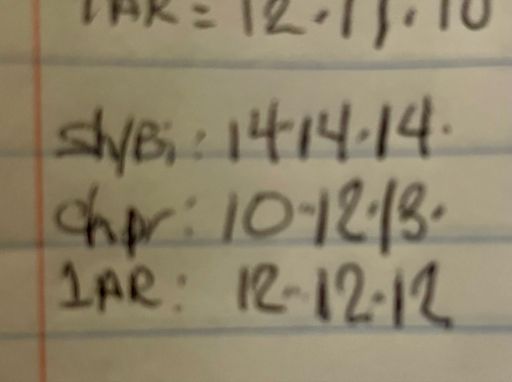 1AR = 12.11.10
sh/Bi: 14.14.14.
chpr: 10.12.13.
1AR: 12.12.12